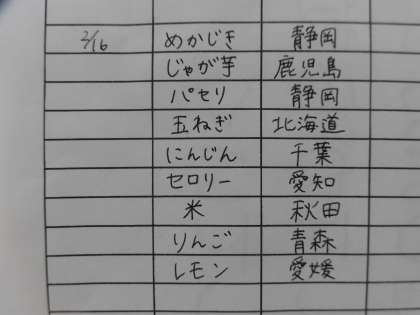 2/16 めかじき 静岡
じゃが芋 鹿児島
パセリ 静岡
玉ねぎ 北海道
にんじん 千葉
セロリー 愛知
米 秋田
りんご 青森
レモン 愛媛